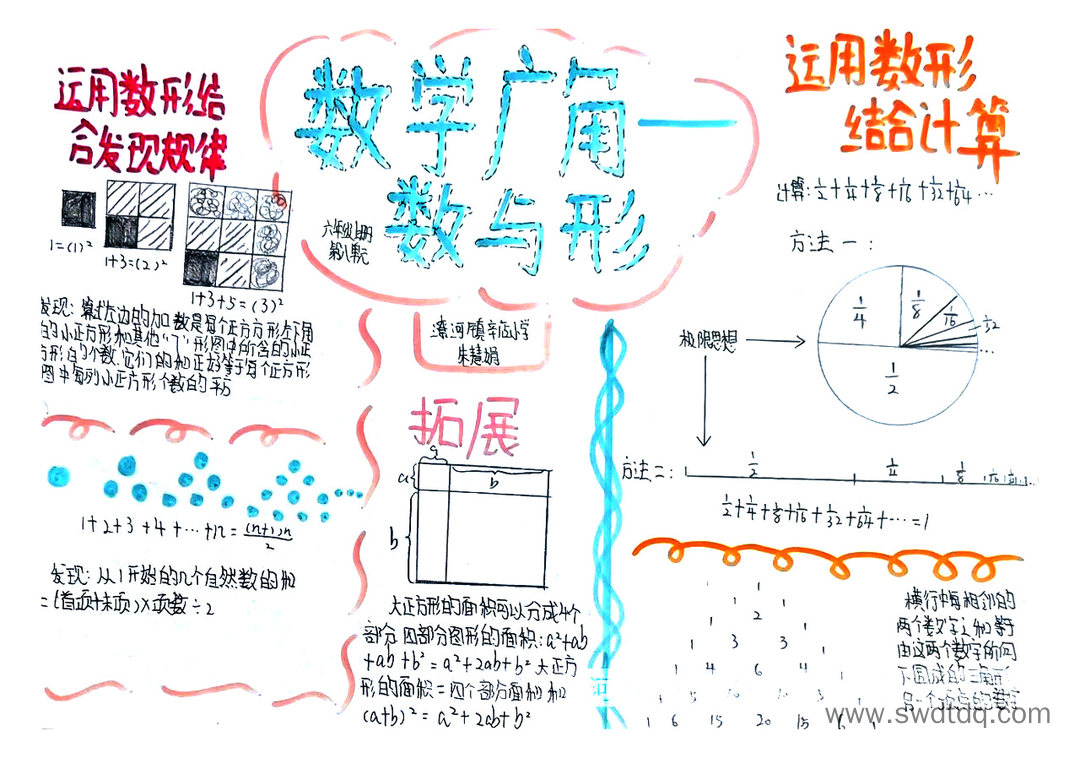 数学广角一
数与形
六年级上册
第八单元
滦河镇辛店小学
运用数形结
合发现规律
1=(1)²
1+3=(2)²
1+3+5=(3)²
发现：算式左边的加数是每个正方形左下角
的小正方形和其他"7"形图中所含的小正
方形的个数,它们的和正好等于每个正方形
图中每列小正方形个数的平方
1+2+3+4+…+n=(n+1)n/2
发现：从1开始的几个自然数的和
=(首项+末项)×项数÷2
拓展
a
a
b
b
大正方形的面积可以分成4个
部分 四部分图形的面积:a²+ab
+ab+b²=a²+2ab+b² 大正方
形的面积=四个部分面积和
(a+b)²=a²+2ab+b²
运用数形
结合计算
计算:1/2+1/4+1/8+1/16+1/32+1/64…
方法一：
极限思想
1/4
1/8
1/16
1/32
…
1/2
方法二:
1/2 1/4 1/8 1/16
1/2+1/4+1/8+1/16+1/32+1/64+…=1
1
1 1
1 2 1
1 3 3 1
1 4 6 4
1 5 10 10 5 1
1 6 15 20 15 6 1
横行中每相邻的
两个数字之和等于
由这两个数字所
下围成的三角形
另一个顶点的数字
www.swdtdq.com